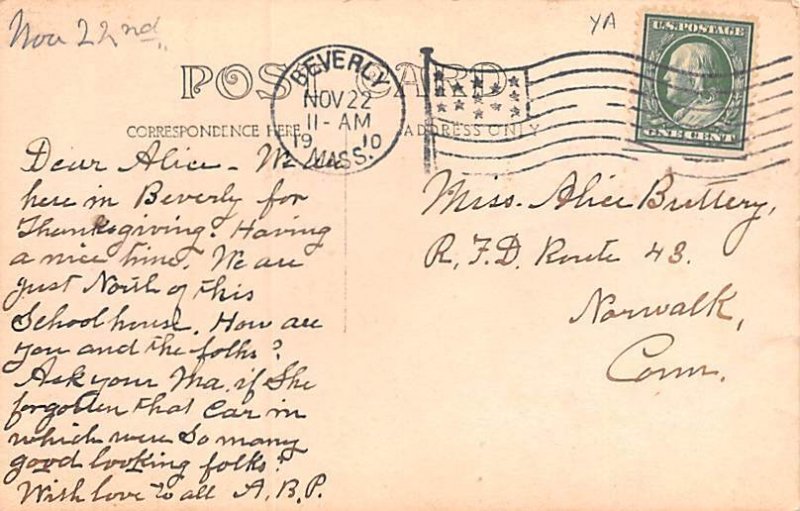 Nov 22nd
YA
POST CARD
U.S. POSTAGE
ONE CENT
BEVERLY
NOV 22
11-AM
19 10
MASS.
CORRESPONDENCE HERE
ADDRESS ONLY
Dear Alice - We are
here in Beverly for
Thanksgiving. Having
a nice time. We are
just North of this
School house. How are
you and the folks?
Ask your Ma. if She
forgotten that Car in
which were So many
good looking folks?
With love to all A.B.P.
Miss. Alice Buttery,
R.F.D. Route 43.
Norwalk,
Conn.